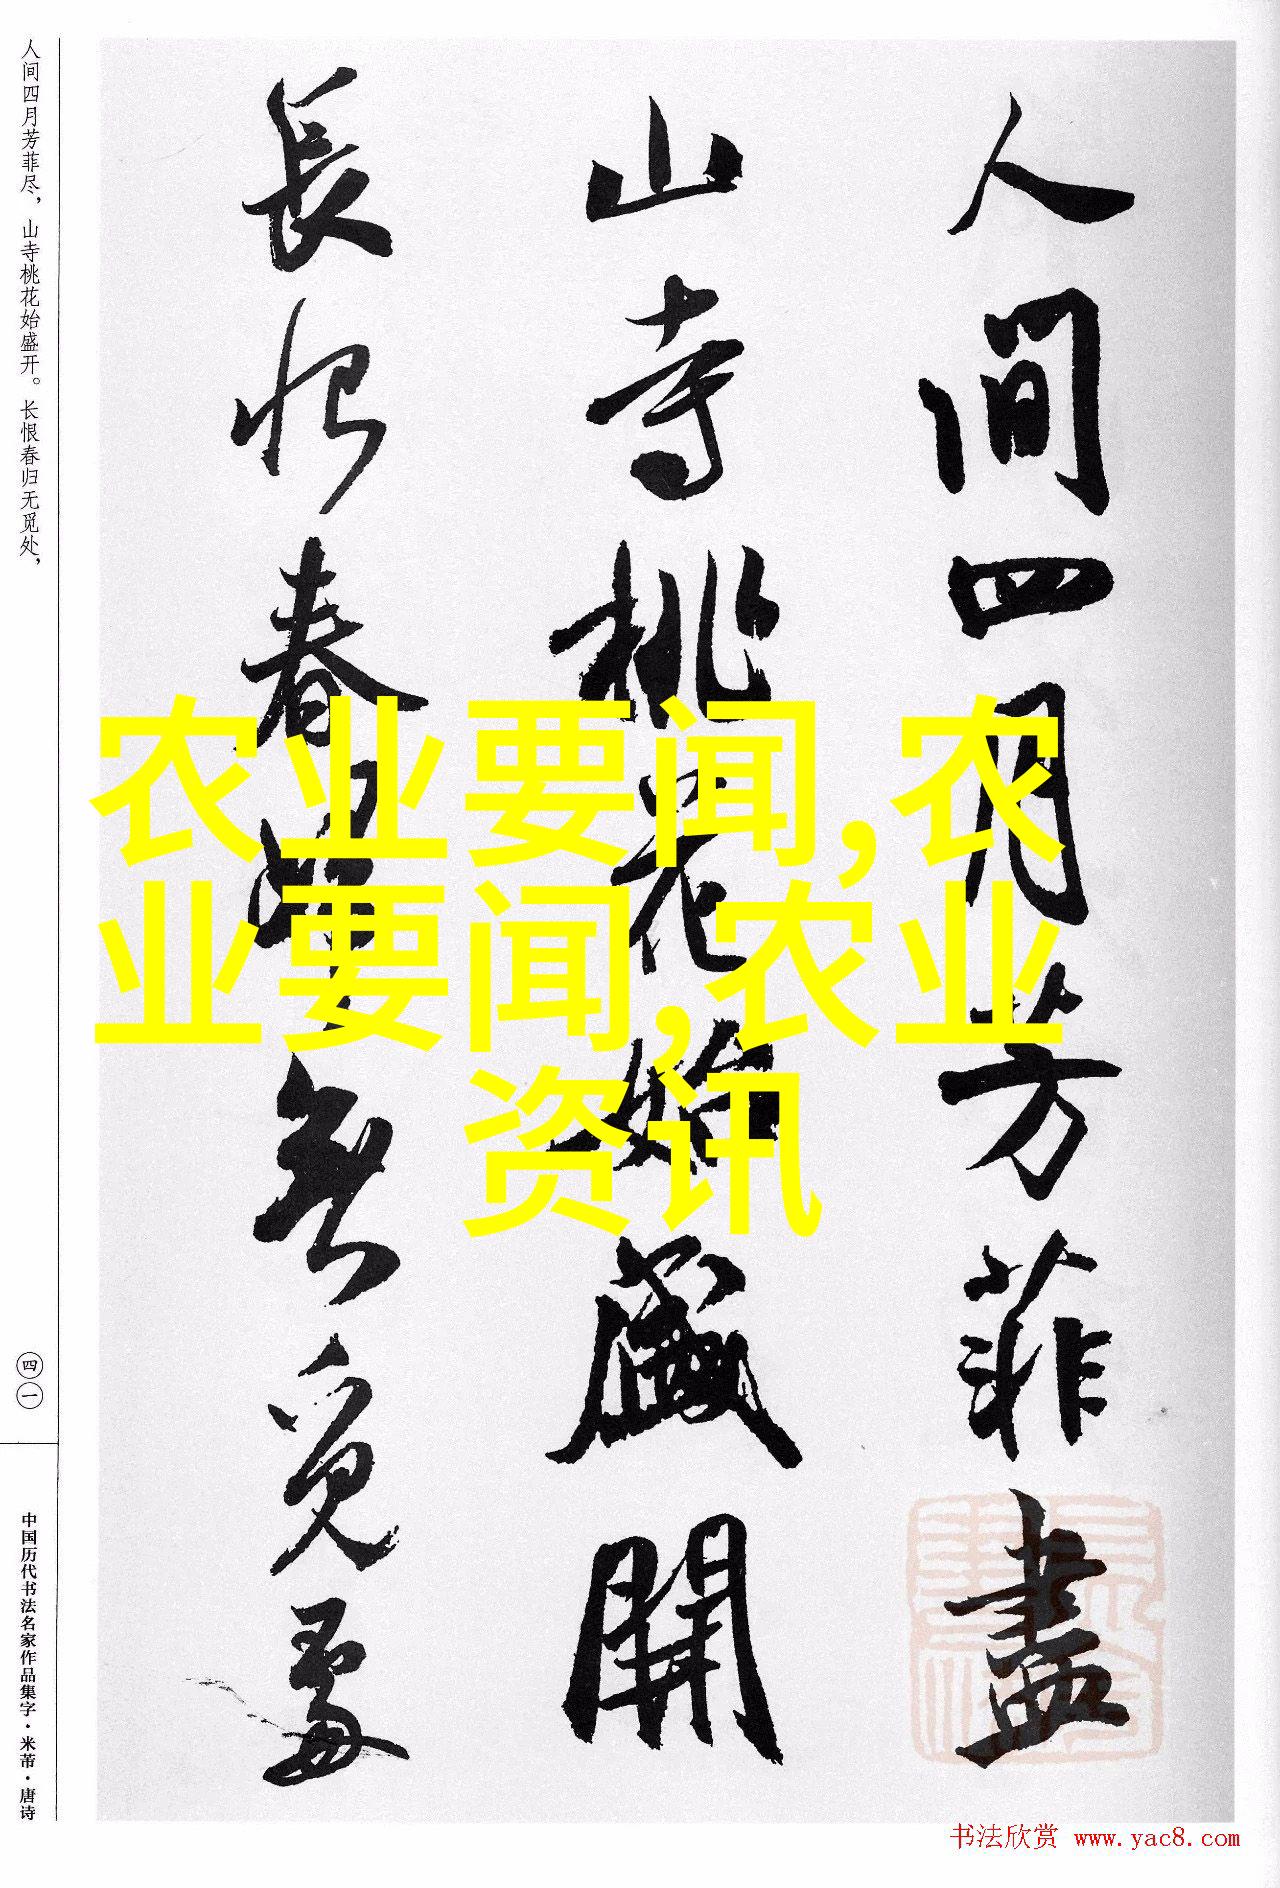 人间四月芳菲尽，山寺桃花始盛开。长恨春归无觅处，
人間四月芳菲盡
山寺桃花始盛開
長恨春歸無覓處
农业要闻,农
业要闻,农业
资讯
四一
中国历代书法名家作品集字·米芾·唐诗
书法欣赏 www.yac8.com